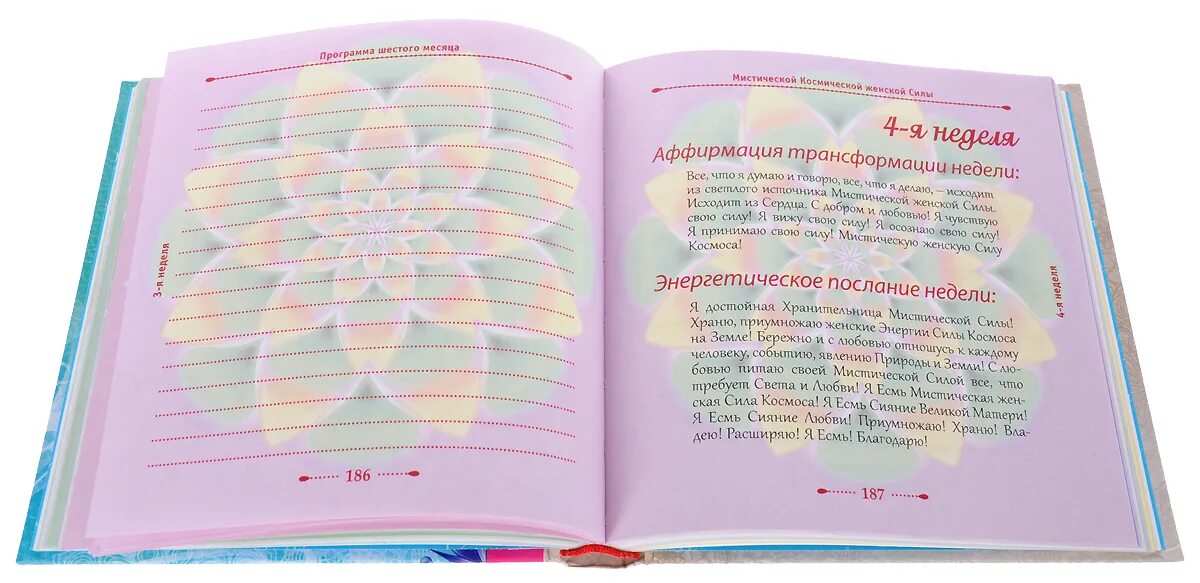 Программа шестого месяца
3-я неделя
186
Мистической Космической женской Силы
4-я неделя
Аффирмация трансформации недели:
Все, что я думаю и говорю, все, что я делаю, – исходит
из светлого источника Мистической женской Силы.
Исходит из Сердца. С добром и любовью! Я чувствую
свою силу! Я вижу свою силу! Я осознаю свою силу!
Я принимаю свою силу! Мистическую женскую Силу
Космоса!
Энергетическое послание недели:
Я достойная Хранительница Мистической Силы!
Храню, приумножаю женские Энергии Силы Космоса
на Земле! Бережно и с любовью отношусь к каждому
человеку, событию, явлению Природы и Земли! С лю-
бовью питаю своей Мистической Силой все, что
требует Света и Любви! Я Есмь Мистическая жен-
ская Сила Космоса! Я Есмь Сияние Великой Матери!
Я Есмь Сияние Любви! Приумножаю! Храню! Вла-
дею! Расширяю! Я Есмь! Благодарю!
4-я неделя
187